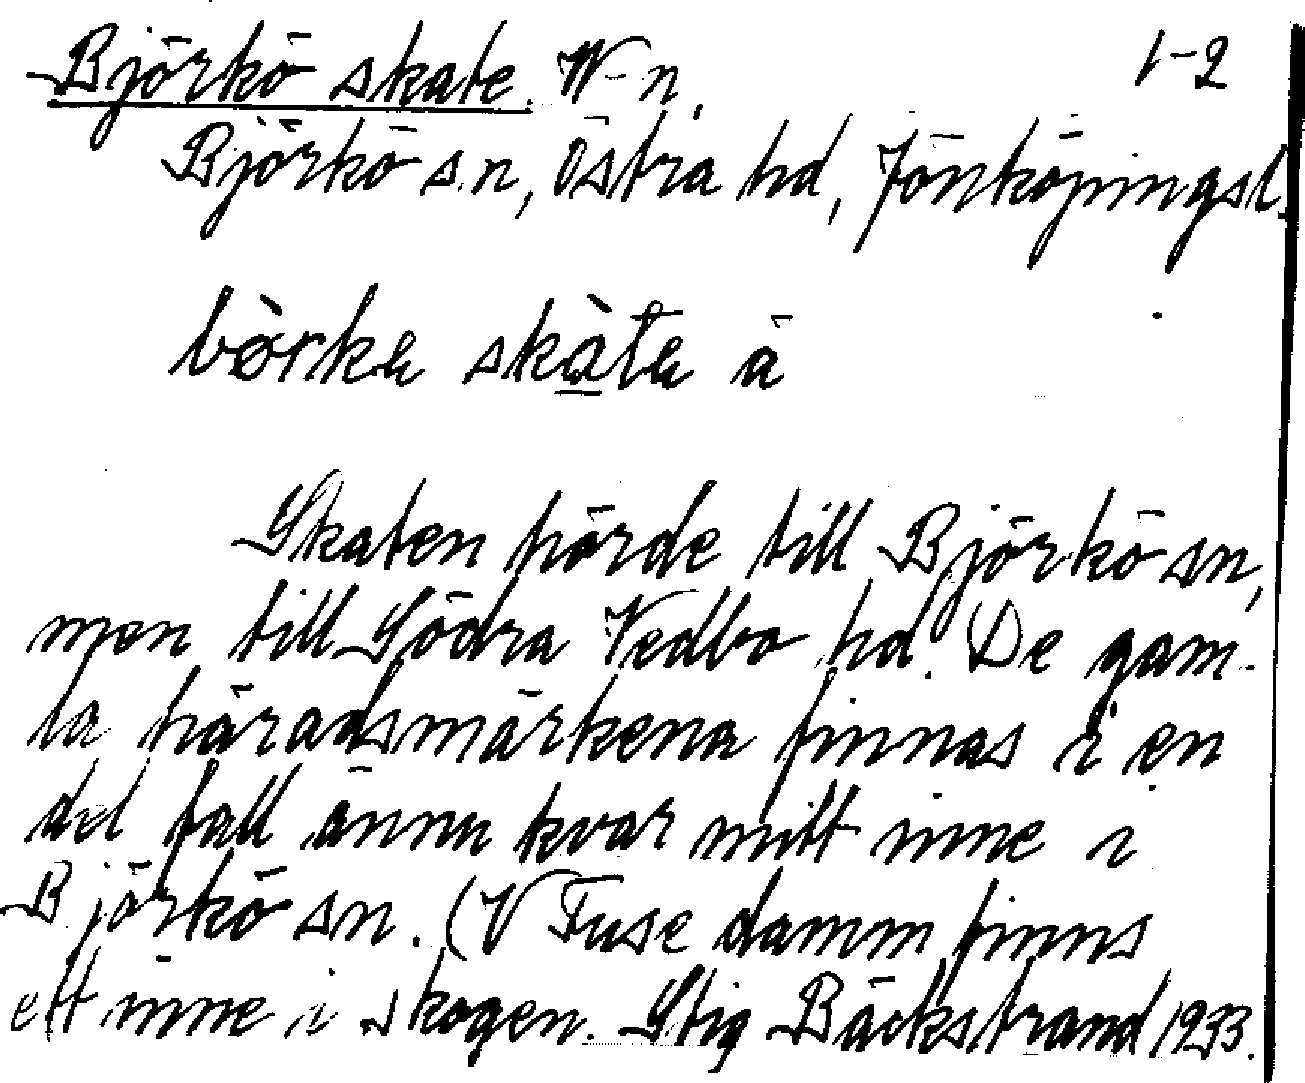 Björkö skate. W-n. 1-2
Björkö s.n, Östra hd, Jönköpingsl.
bø̀rka skàta ā
Skaten hörde till Björkö sn,
men till Södra Vedbo hd. De gam-
la häradsmärkena finnas i en
del fall ännu kvar mitt inne i
Björkö sn. (V Fuse damm finns
ett inne i skogen. Stig Bäckstrand 1933.